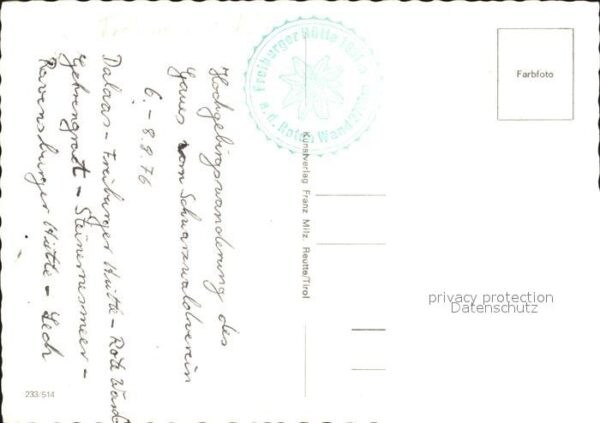 Hochgebirgswanderung des
Gaues vom Schwarzwaldverein
6. - 8.9.76
Dalaas - Freiburger Hütte - Rote Wand
Gehrengrat - Steinernesmeer -
Ravensburger Hütte - Lech
Freiburger Hütte
a. d. Roten Wand
Farbfoto
Kunstverlag Franz Milz Reutte/Tirol
233/514
privacy protection
Datenschutz